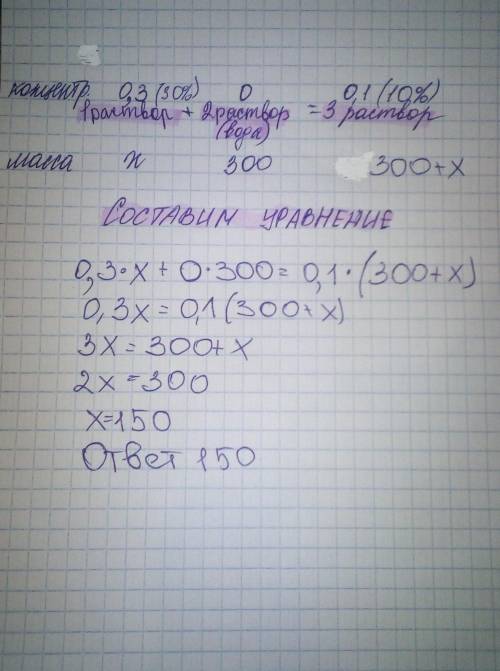 концентр. 0,3 (30%) 0 0,1 (10%)
1 раствор + 2 раствор = 3 раствор
(вода)
масса x 300 300+x
Составим уравнение
0,3·x + 0·300 = 0,1·(300+x)
0,3x = 0,1(300+x)
3x = 300+x
2x = 300
x=150
Ответ 150